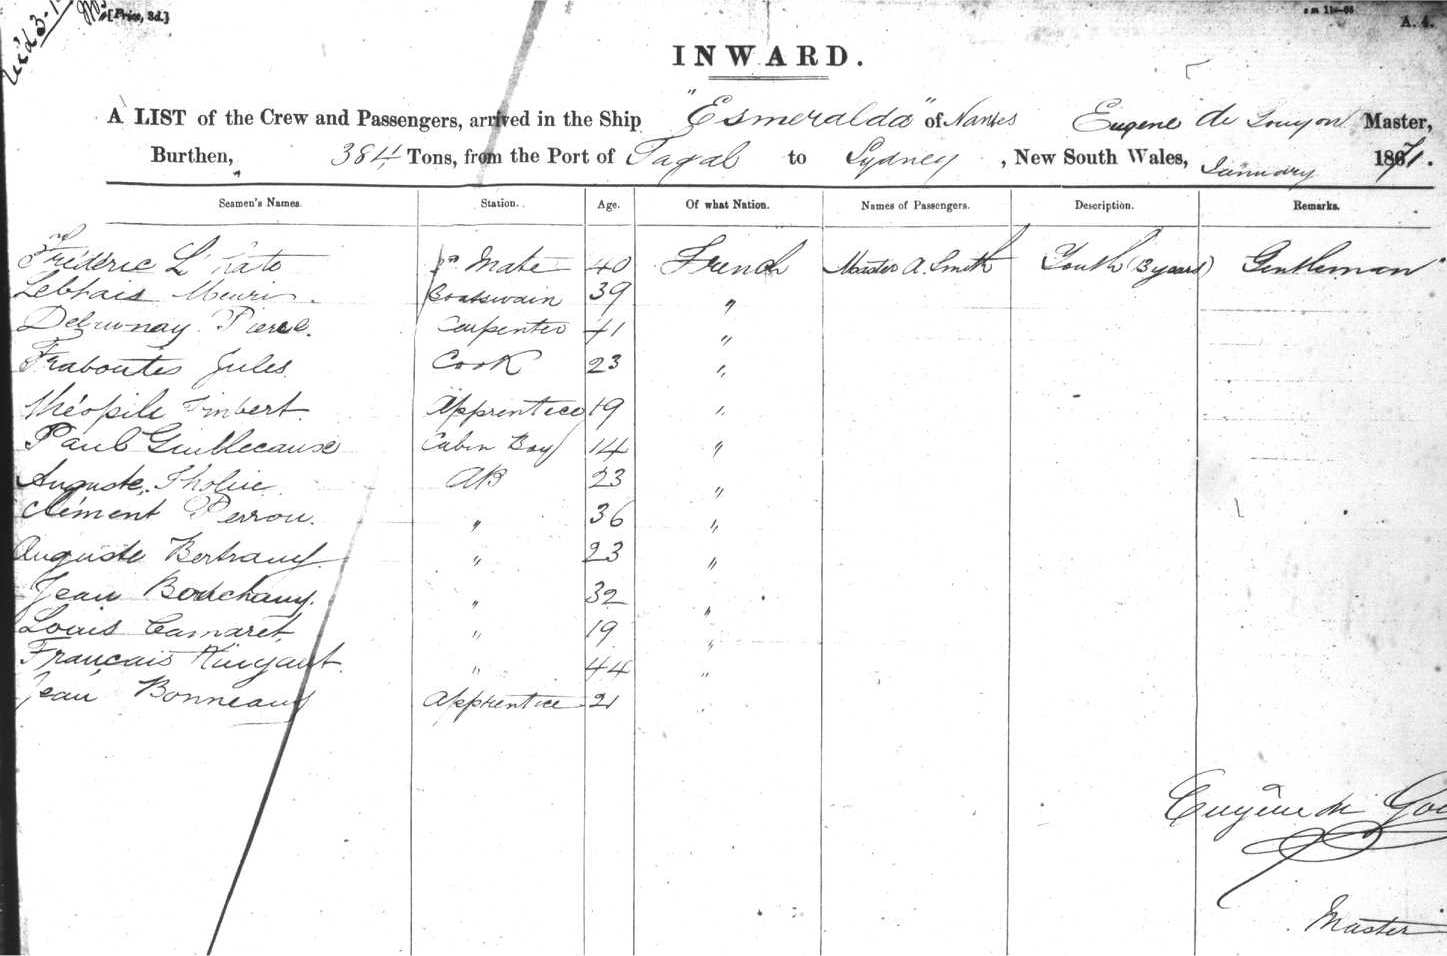 [Price, 3d.]
A. 4.
INWARD.
A LIST of the Crew and Passengers, arrived in the Ship "Esmeralda" of Nantes Eugene de Master,
Burthen, 384 Tons, from the Port of Tagal to Sydney, New South Wales, January 1871.
Seamen's Names. Station. Age. Of what Nation. Names of Passengers. Description. Remarks.
Frédéric Mate 40 French Master A. Smith Youth (13 years) Gentleman
Boatswain 39 "
Pierre. Carpenter 41 "
Fraboutes Jules Cook 23 "
Théopile Imbert Apprentice 19 "
Paul Guillecaux Cabin Boy 14 "
Auguste AB 23 "
Clément Perron. " 36 "
Auguste Bertrand " 23 "
Jean " 32 "
Louis Camaret " 19 "
Français " 44 "
Jean Bonneau Apprentice 21
Eugène de
Master